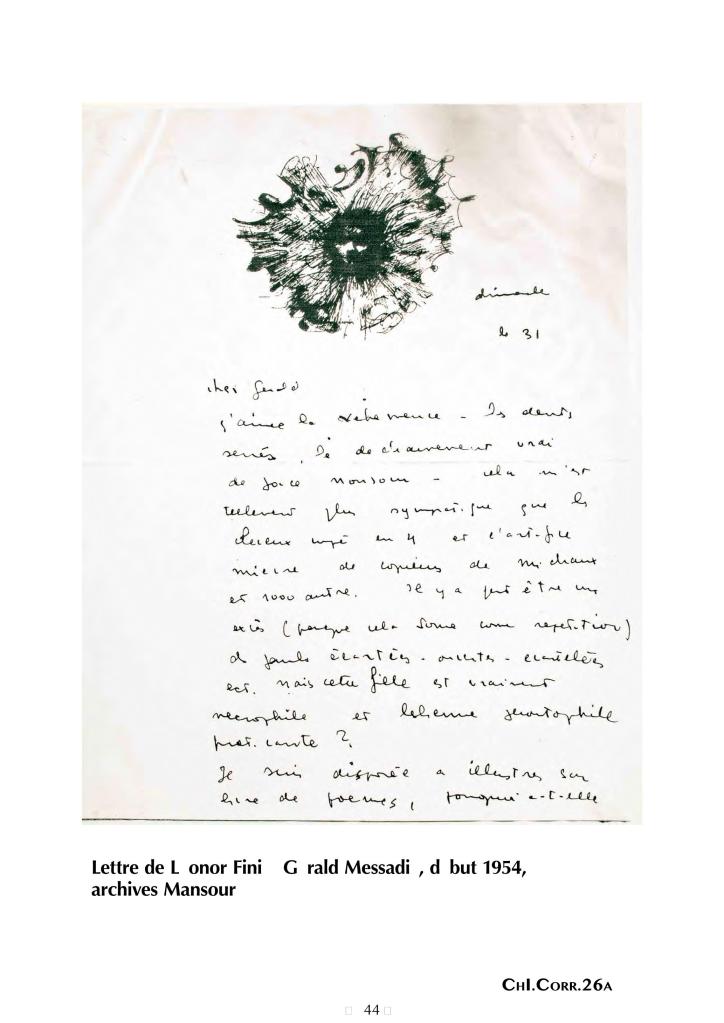 dimanche
le 31
cher Gerald
j'aime la vehemence - les dents
serrés, le
de Joice Mansour - cela m'est
tellement plus sympatique que les
cheveux en 4 et l'artifice
de copieurs de Michaux
et 1000 autre. Il y a peut être un
excès (parque cela sonne come repetition)
d ecartées - ouvertes - ecartelées
ect. Mais cette fille est vraiment
necrophile et gerontophile
?
Je suis disposée a illustrer son
livre de poemes, a-t-elle
Lettre de L onor Fini G rald Messadi , d but 1954,
archives Mansour
CHI.CORR.26A
44